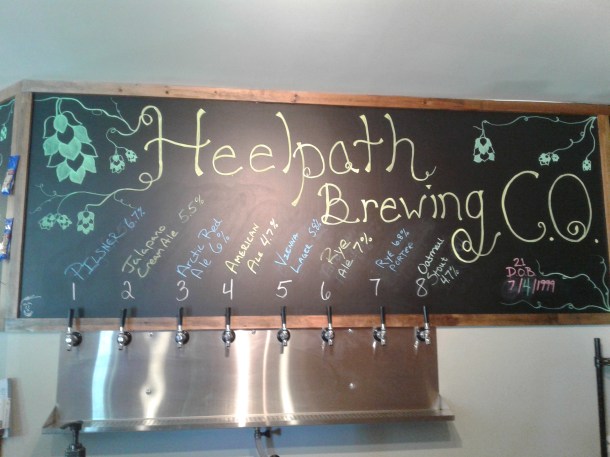 Heelpath
Brewing CO.
PILSNER 6.7%
Jalapano
Cream Ale 5.5%
Arctic Red
Ale 6%
AMERICAN
Ale 4.7%
Vienna
Lager 5.8%
Rye
Ale 7%
Rye 6.8%
PORTER
Oatmeal
Stout
4.7%
1 2 3 4 5 6 7 8
21
D.O.B
7/4/1999